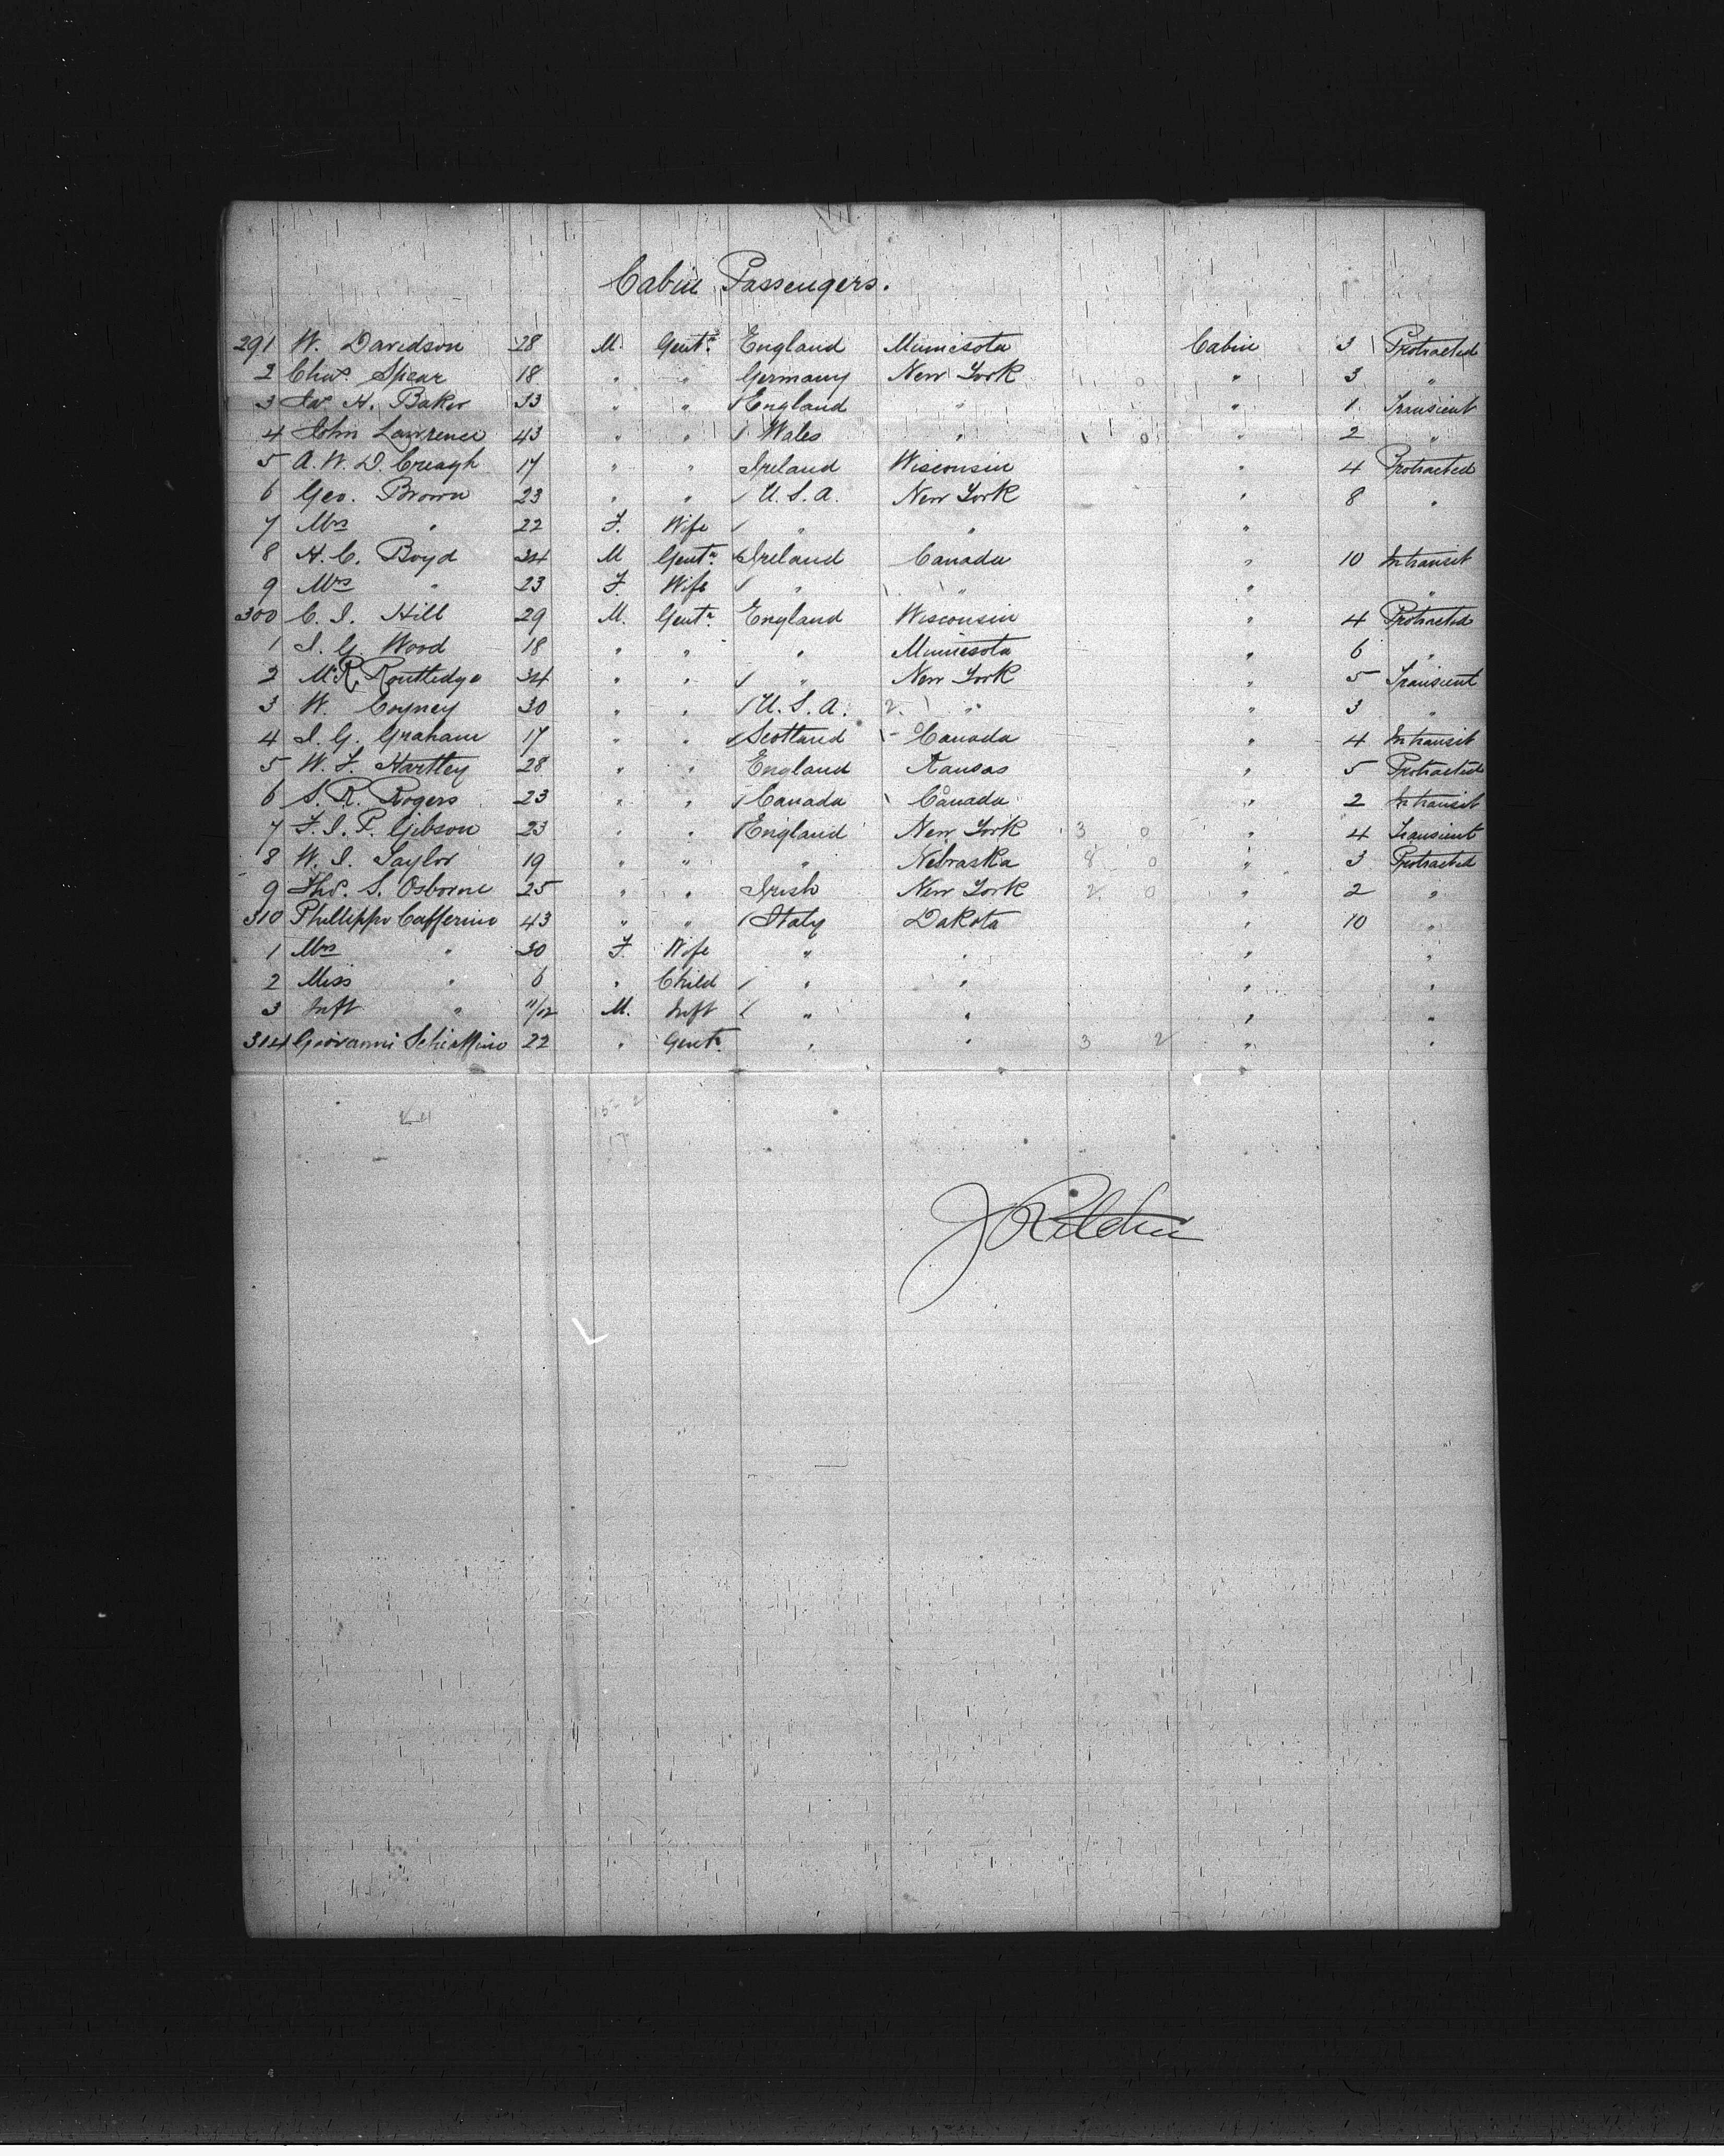 Cabin Passengers.
291 W. Davidson 28 M. Gentn England Minnesota Cabin 3 Protracted
2 Chas. Spear 18 " " Germany New York " 3 "
3 Jas H. Baker 33 " " England " " 1 Transient
4 John Lawrence 43 " " Wales " " 2 "
5 A. W. D. Creagh 17 " " Ireland Wisconsin " 4 Protracted
6 Geo. Brown 23 " " U. S. A. New York " 8 "
7 Mrs " 22 F. Wife " " "
8 H. C. Boyd 34 M Gentn Ireland Canada " 10 Intransit
9 Mrs " 23 F. Wife " " " "
300 C. I. Hill 29 M. Gentn England Wisconsin " 4 Protracted
1 I. G. Wood 18 " " " Minnesota " 6 "
2 Routledge 34 " " " New York " 5 Transient
3 W. Coyney 30 " " U. S. A. " " 3 "
4 I. G. Graham 17 " " Scotland Canada " 4 Intransit
5 W. F. Hartley 28 " " England Kansas " 5 Protracted
6 S. R. Rogers 23 " " Canada Canada " 2 Intransit
7 F. I. P. Gibson 23 " " England New York 3 0 " 4 Transient
8 W. I. Taylor 19 " " " Nebraska 8 0 " 3 Protracted
9 Thos. S. Osborne 25 " " Irish New York 2 0 " 2 "
310 Phillippo Cafferino 43 " " Italy Dakota " 10 "
1 Mrs " 30 F. Wife " " " "
2 Miss " 6 " Child " " " "
3 Inft " 11/12 M. Inft " " " "
314 Giovanni Schiaffino 22 " Gentn " " 3 2 " "